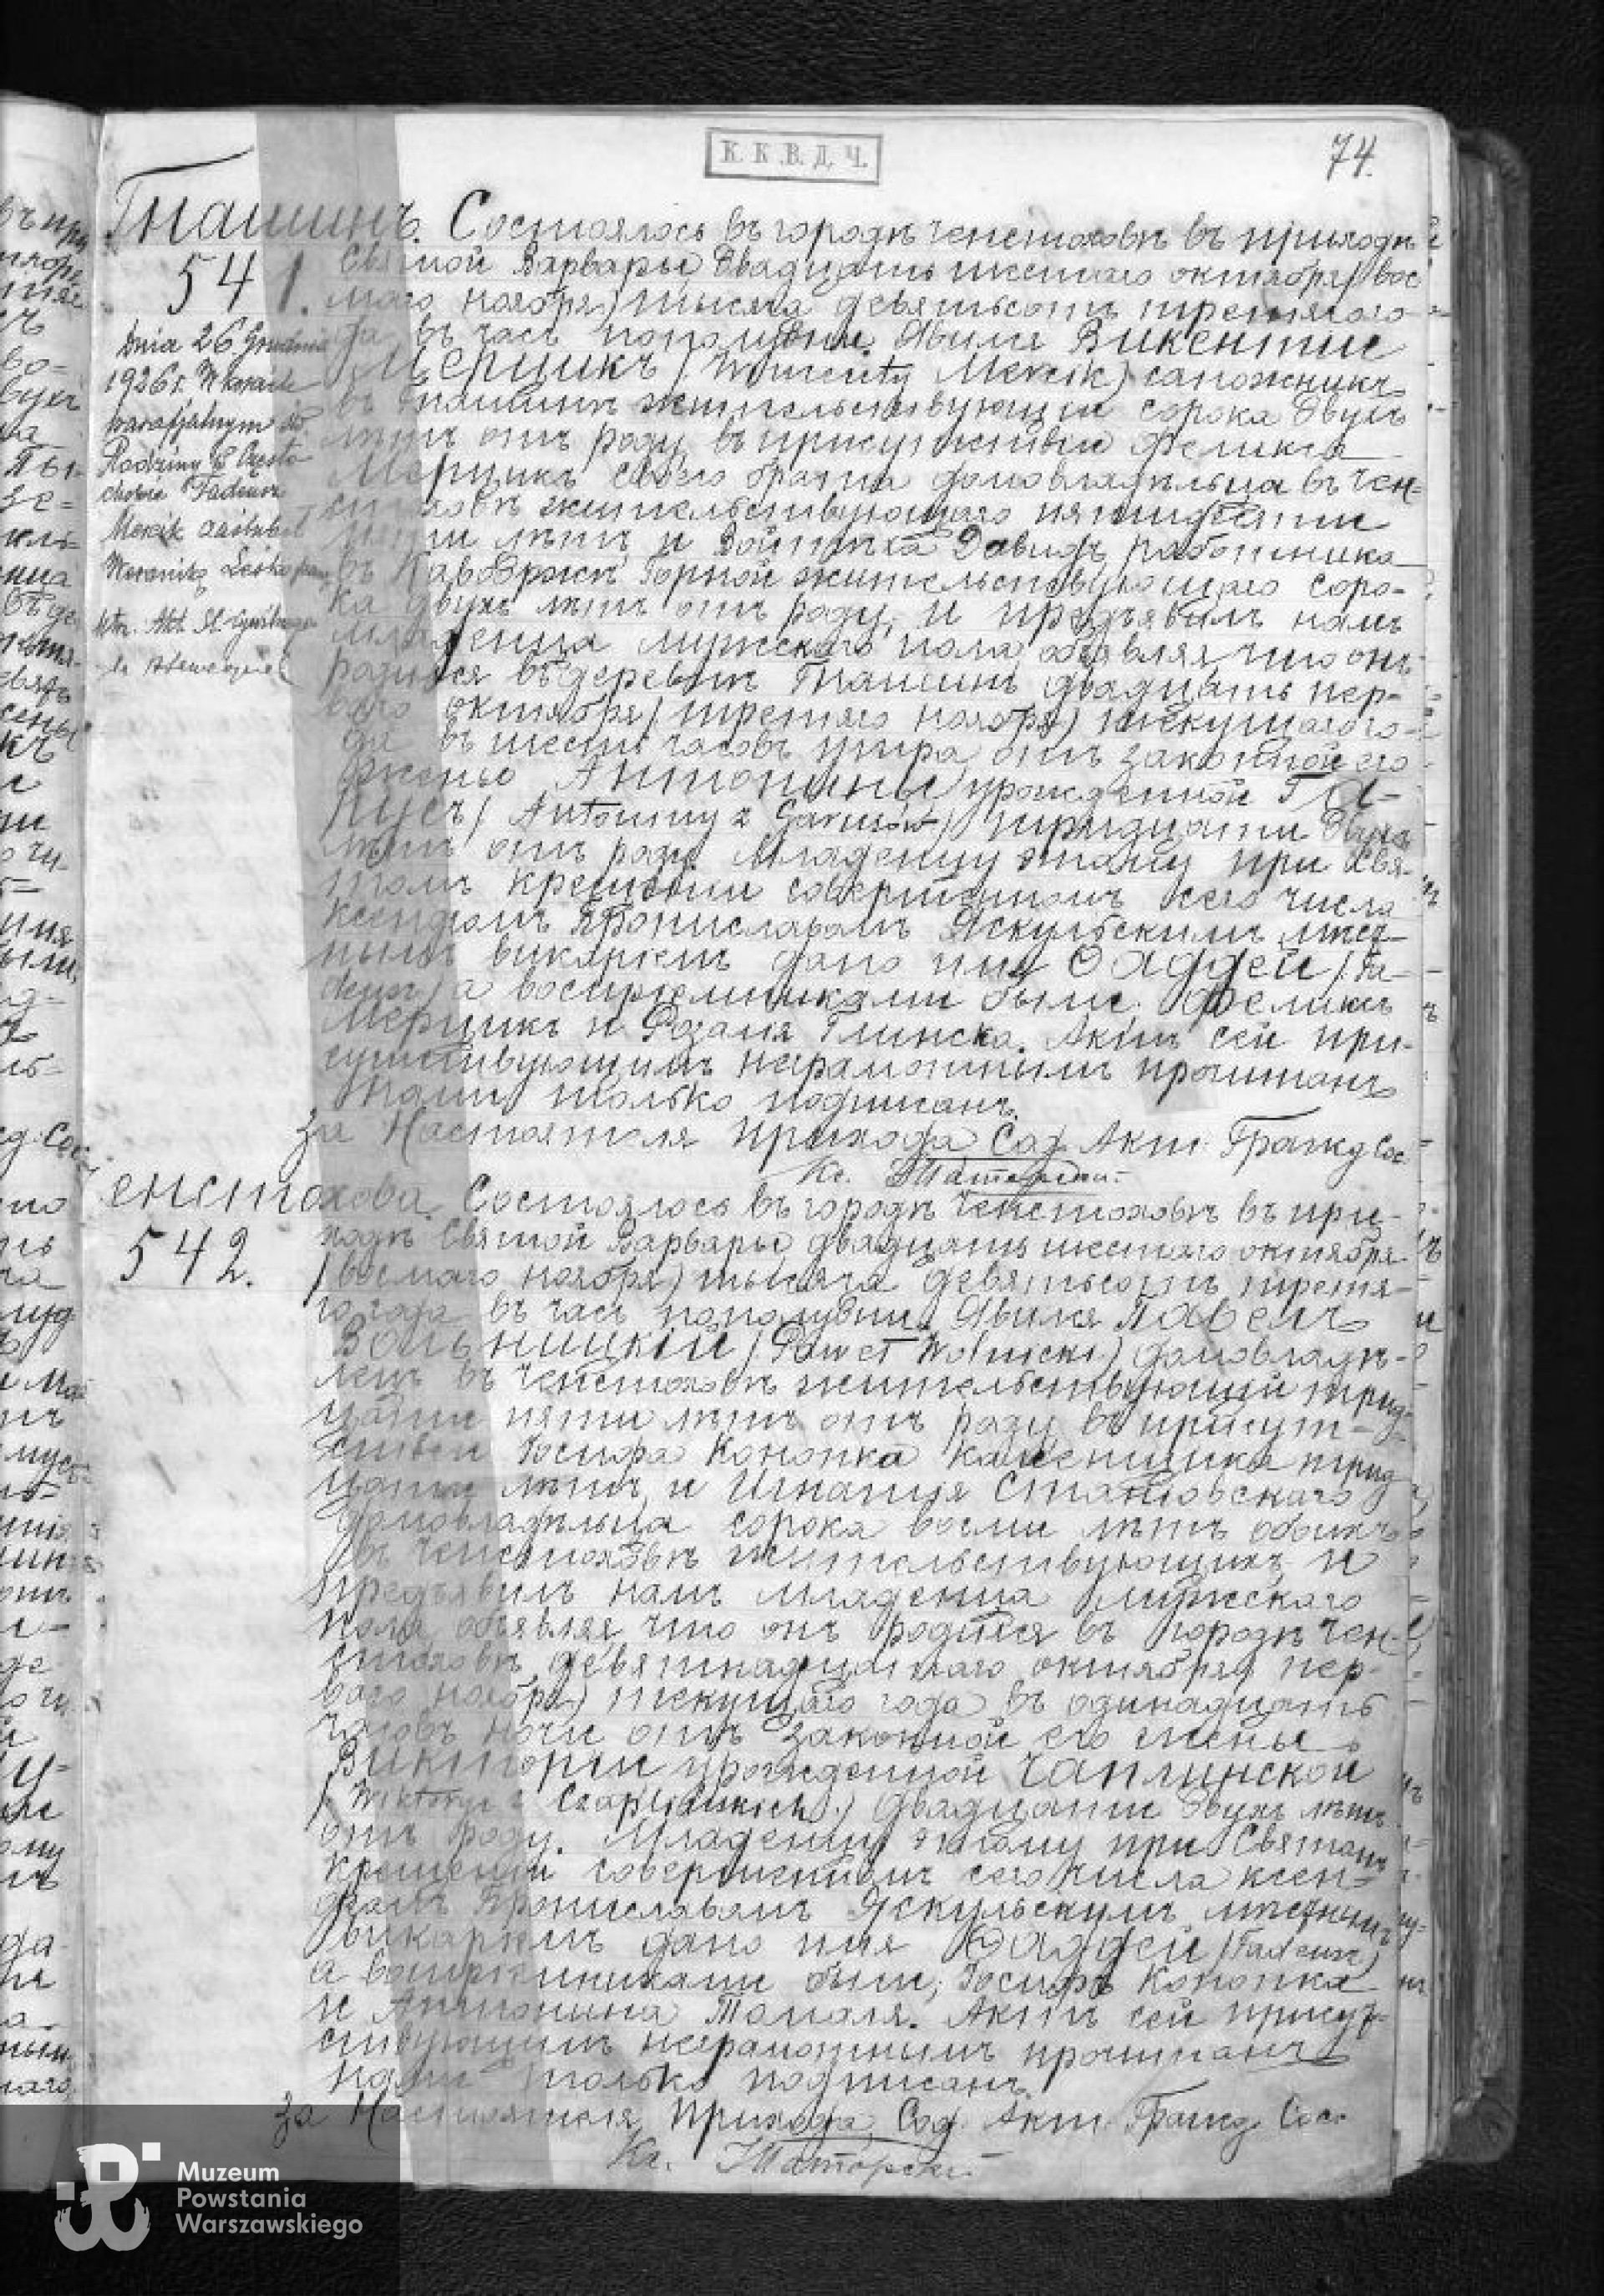 К. К. В. Д. Ч.
74.
Гнашинъ. Состоялось въ городѣ Ченстоховѣ въ приходѣ
541. Святой Варвары двадцать шестаго октября (вос
маго ноября) тысяча девятьсотъ третяго
да въ часъ пополудни. Явился Викентие
Dnia 26 Grudnia
Мерцикъ (Wincenty Mercik) сапожникъ
1926 r. W kościele
въ Гнашинѣ жительствующии сорока двухъ
parafjalnym
лѣтъ отъ роду, въ присутствии Феликса
Rodziny w Często
Мерцикъ своего брата домовладѣльца въ Чен-
chowie Tadeusz
стоховѣ жительствующаго пятидесяти
Mercik zaślubił
лѣтъ и Войтѣха Давидъ работника
Weronikę
въ Каводржѣ Горной жительствующаго соро-
ка двухъ лѣтъ отъ роду, и предъявилъ намъ
младенца мужескаго пола объявляя что онъ
родился въ деревнѣ Гнашинъ двадцать пер-
ваго октября (третяго ноября) текущаго го-
да въ шесть часовъ утра отъ законной его
жены Антонины урожденной Га-
русъ (Antoniny z Garusów) тридцати двухъ
лѣтъ отъ роду. Младенцу этому при Свя-
томъ крещении совершенномъ сего числа
ксендзомъ Брониславомъ Яскульскимъ мѣст-
нымъ викариемъ дано имя Ѳаддей (Ta-
deusz) а восприемниками были: Феликсъ
Мерцикъ и Розалия Глинска. Актъ сей при-
сутствующимъ неграмотнымъ прочитанъ
Нами только подписанъ.
За Настоятеля Прихода Сод. Акт. Гражд. Сос.
Кс.
енстохова. Состоялось въ городѣ Ченстоховѣ въ при-
542. ходѣ Святой Варвары двадцать шестаго октября
(восмаго ноября) тысяча девятьсотъ третя-
го года въ часъ пополудни. Явился Павелъ
Вольницкій (Paweł Wolnicki) домовладѣ-
лецъ въ Ченстоховѣ жительствующий трид-
цати пяти лѣтъ отъ роду въ присут-
ствии Іосифа Конопка каменщика трид
цати лѣтъ и Игнатия
домовладѣльца сорока восми лѣтъ обоихъ
въ Ченстоховѣ жительствующихъ и
предъявилъ намъ младенца мужескаго
пола объявляя что онъ родился въ городѣ Чен-
стоховѣ девятнадцатаго октября (пер-
ваго ноября) текущаго года въ одинадцать
часовъ ночи отъ законной его жены
Виктории урожденной Чаплинской
(Wiktoryi z Czaplińskich) двадцати двухъ лѣтъ
отъ роду. Младенцу этому при Святомъ
крещении совершенномъ сего числа ксен-
дзомъ Брониславомъ Яскульскимъ мѣстнымъ
викариемъ дано имя Ѳаддей (Tadeusz)
а восприемниками были: Іосифъ Конопка
и Антонина Томаля. Актъ сей присут-
ствующимъ неграмотнымъ прочитанъ
Нами только подписанъ.
За Настоятеля Прихода Сод. Акт. Гражд. Сос.
Кс.
Muzeum
Powstania
Warszawskiego